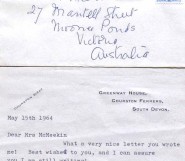 27 Mantell Street
Moonee Ponds
Victoria
Australia
GREENWAY HOUSE,
CHURSTON FERRERS,
SOUTH DEVON.
May 15th 1964
Dear Mrs McMeekin
What a very nice letter you wrote
me! Best wishes to you, and I can assure
you I am still writing!